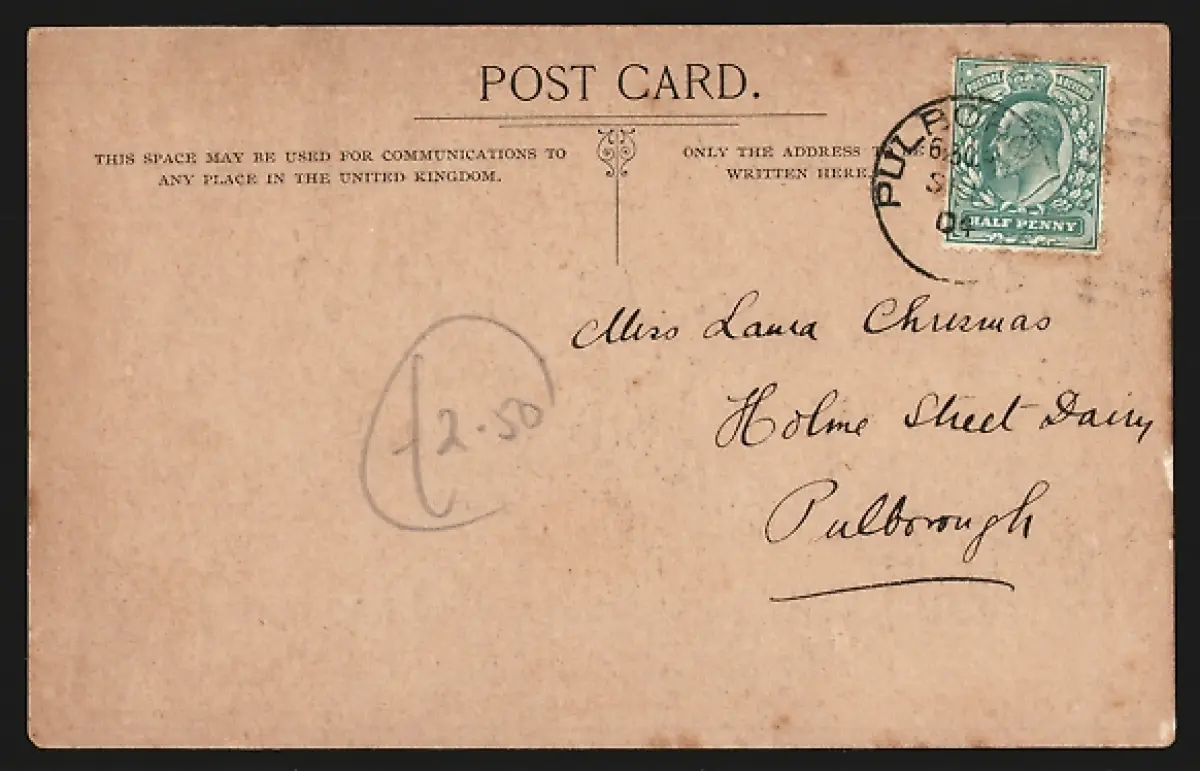 POST CARD.
THIS SPACE MAY BE USED FOR COMMUNICATIONS TO
ANY PLACE IN THE UNITED KINGDOM.
ONLY THE ADDRESS
WRITTEN HERE.
PULBO
04
HALF PENNY
Miss Laura Chrismas
Holme Street Dairy
Pulborough
£2.50